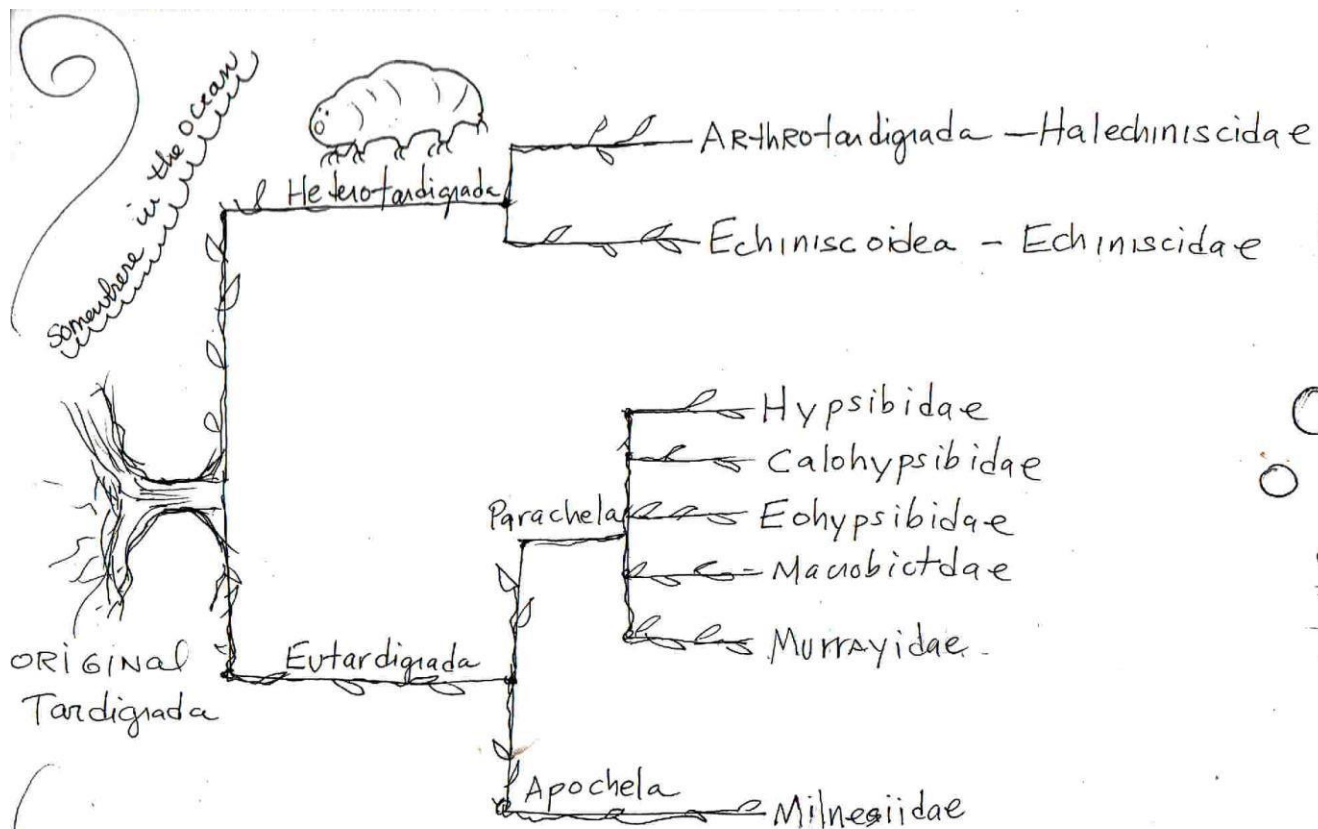 somewhere in the ocean
Heterotardigrada
ARthRotardigrada – Halechiniscidae
Echiniscoidea – Echiniscidae
Hypsibidae
Calohypsibidae
Parachela
Eohypsibidae
Macrobictdae
Murrayidae
ORiGiNal
Tardigrada
Eutardigrada
Apochela
Milnesiidae